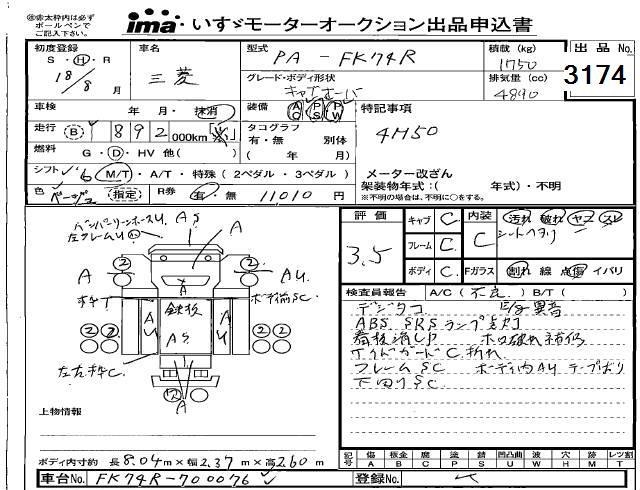 ㊟赤太枠内は必ず
ボールペンで
ご記入下さい。
ima いすゞモーターオークション出品申込書
初度登録 車名 型式 PA - FK74R 積載 (kg) 1750 出品 No.
S ・ H ・ R 三菱 グレード・ボディ形状 排気量 (cc) 3174
18/8 月 キャブオーバ 4890
車検 年 月・抹消 装備 AC PS PW 特記事項
走行 (B) 892 000km タコグラフ 4M50
有・無 別体
燃料 G ・ D ・ HV 他( ) ( 年 月)
シフト 6 M/T ・ A/T ・ 特殊 ( 2ペダル ・ 3ペダル ) メーター改ざん
架装物年式:( 年式)・不明
色 ベージュ (指定) R券 有・無 11010 円 ※不明の場合は、不明に○をする。
評価 3.5 キャブ C 内装 C 汚れ 破れ ヤブ スレ
シートヘタリ
フレーム C
ボディ C Fガラス 割れ 線 点傷 イバリ
左フレームU AS
A A AU
ボデ前SC
鉄板
AU AS AU
左右枠C
A
検査員報告 A/C ( 不良 ) B/T ( )
デジタコ E/g異音
ABS SRSランプ点灯
荷板凹UP ホロ破れ補修
サイドガードC 折れ
フレームSC ボディ内AU テープばり
下回りSC
上物情報
記号 傷 A 板金 B 腐 C 塗 P 錆 S 凹凸曲 U 波 W 穴 H 跡 M レツ割 T
ボディ内寸約 長 8.04 m × 幅 2.37 m × 高 2.60 m
車台No. FK74R-700076 登録No.